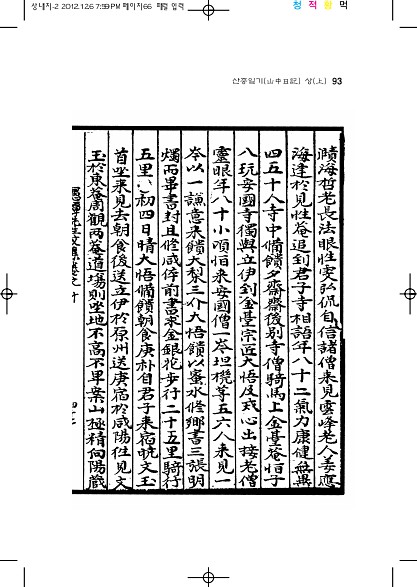 상내지-2 2012.12.6 7:59 PM 페이지66
청 적 황 먹
산중일기(山中日記) 상(上) 93
賾海哲老長法眼性安弘侃自信諸僧來見雲峰老人姜應
海逢於見性菴追到君子寺相語年八十二氣力康健無異
四五十人寺中備饋夕齋齋後別寺僧騎馬上金臺菴恒子
八玩安國寺獨與立伊到金臺宗匠大悟及戒心出接老僧
靈眼年八十小頃怡來安國僧一岑坦機尊五六人來見一
岑以一謙意來饋大梨三介大悟饋以蜜水修鄕書三張明
燭而畢書封且修咸倅前書宋金銀花步行二十五里騎行
五里初四日晴大悟備饋朝食庚朴自君子來宿晩文玉
首坐來見去朝食後送立伊於原州送庚宿於咸陽往見文
玉於東菴周觀兩菴道場則坐地不高不卑案山極精向陽藏